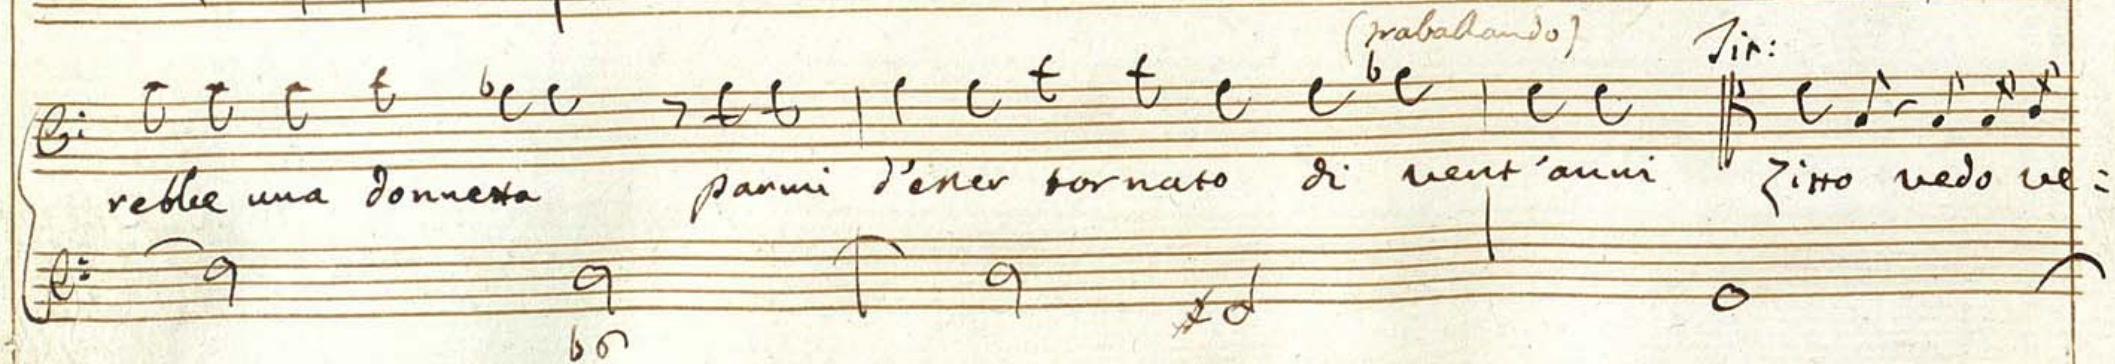 (traballando)
Sir:
rebbe una donnetta parmi d'esser tornato di vent'anni Zitto vedo ve=
b6